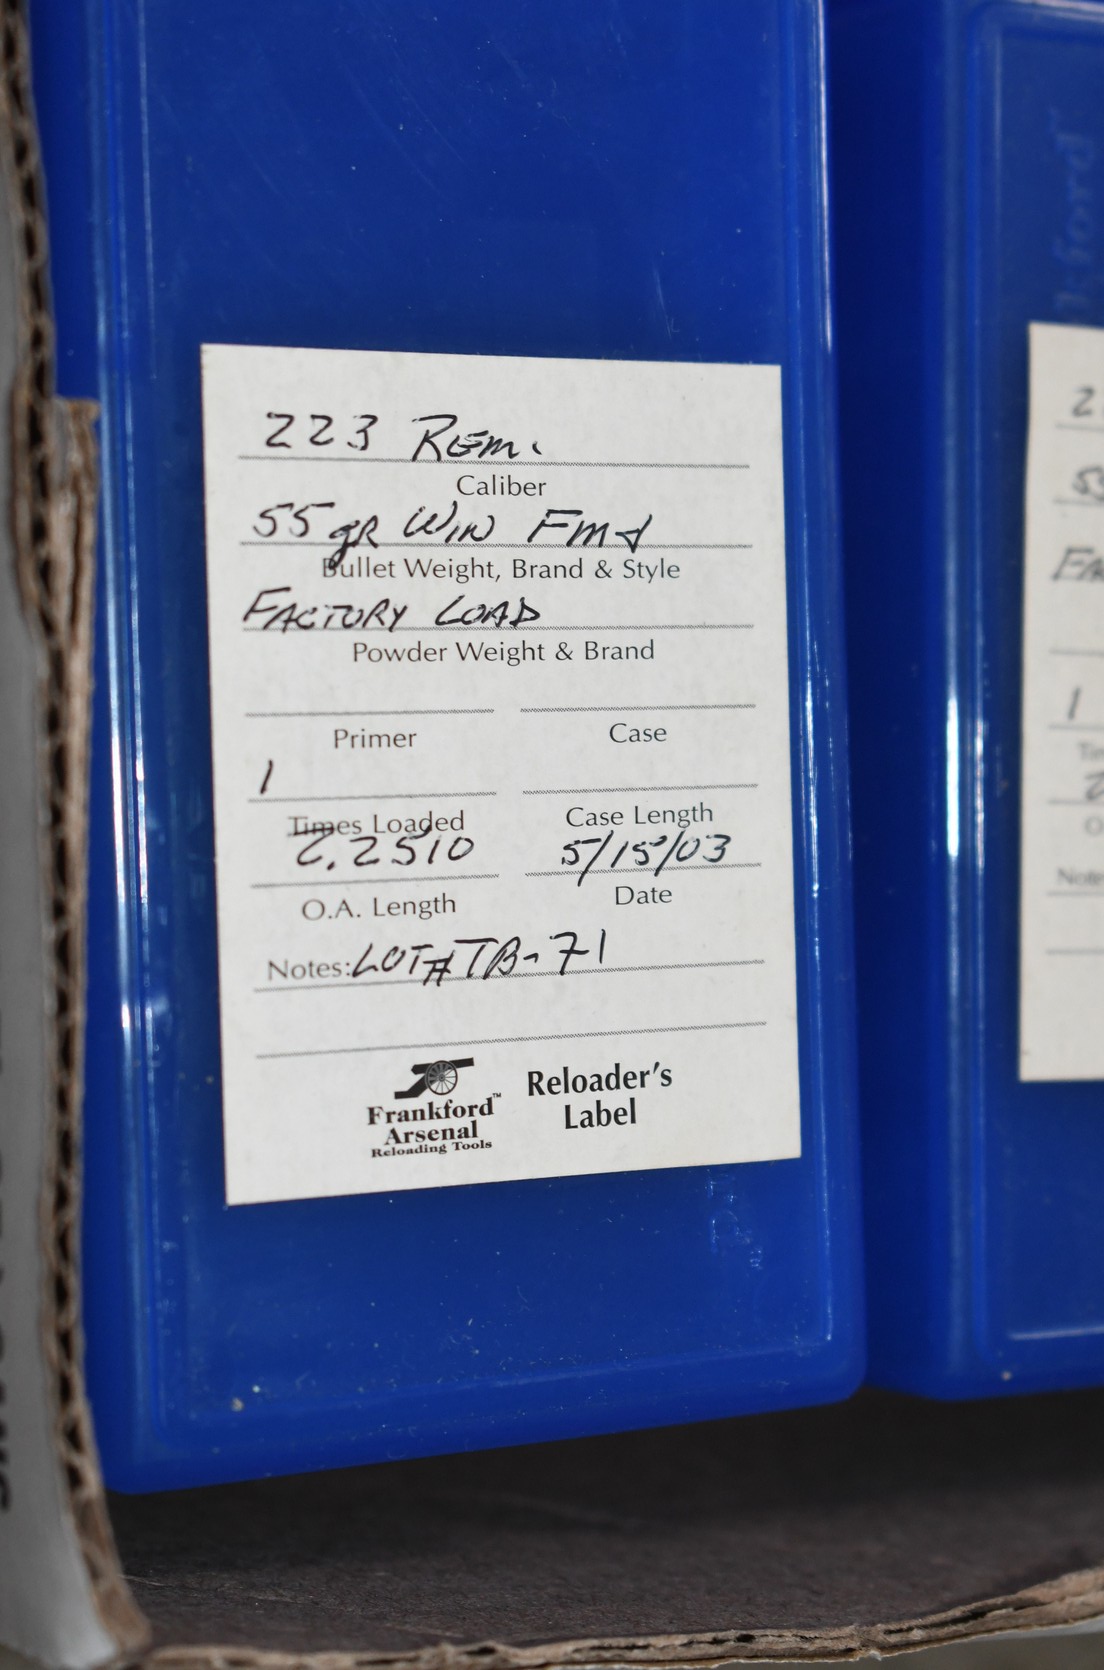 223 Rem.
Caliber
55 gR WIN FMJ
Bullet Weight, Brand & Style
FACTORY LOAD
Powder Weight & Brand
Primer Case
1
Times Loaded Case Length
2.2510 5/15/03
O.A. Length Date
Notes: LOT# TB-71
Frankford™ Reloader's
Arsenal Label
Reloading Tools
2
55
FA
1
Tim
2
O
Note